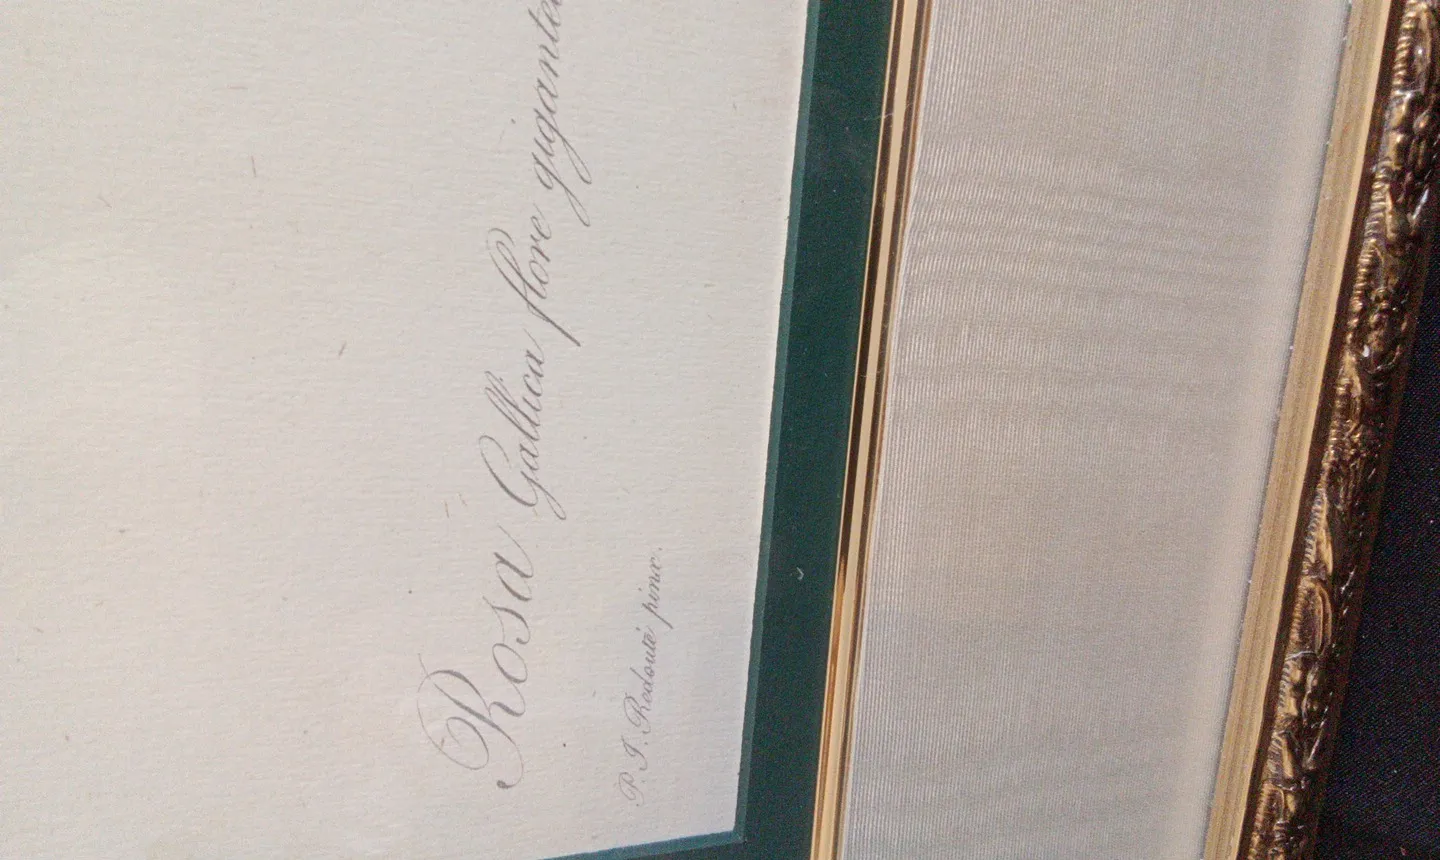 Rosa Gallica flore
P. J. Redouté pinx.